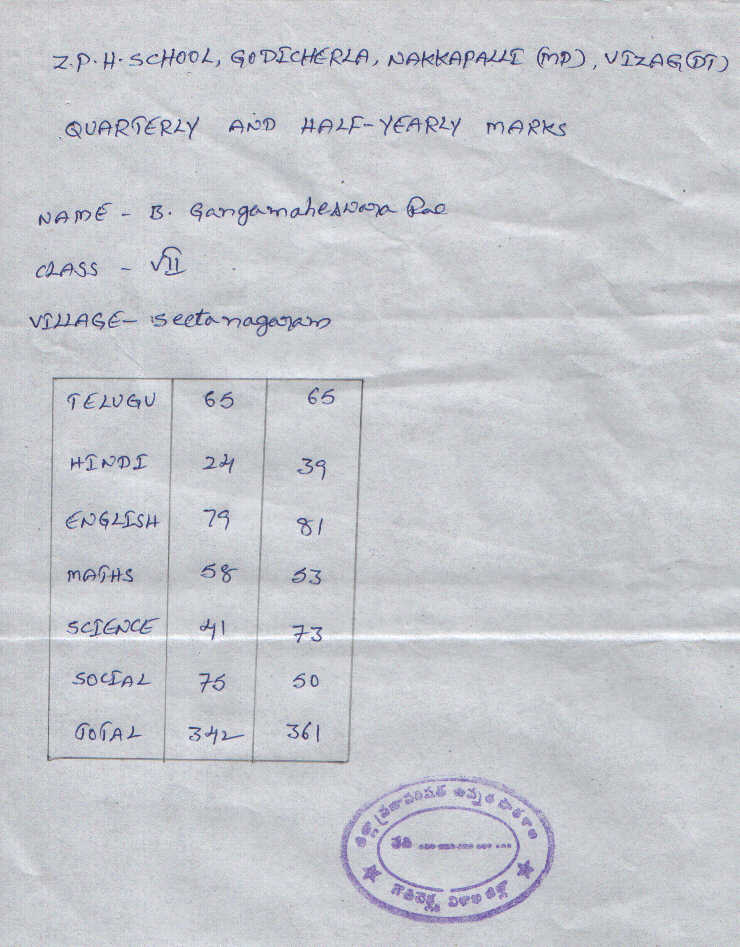 Z.P.H. SCHOOL, GODICHERLA, NAKKAPALLI (MD), VIZAG(DT)
QUARTERLY AND HALF-YEARLY MARKS
NAME - B. Gangamaheswara Rao
CLASS - VII
VILLAGE- Seetanagaram
TELUGU 65 65
HINDI 24 39
ENGLISH 79 81
MATHS 58 53
SCIENCE 41 73
SOCIAL 75 50
TOTAL 342 361
జిల్లా ప్రజాపరిషత్ ఉన్నత పాఠశాల
తేది
విశాఖ జిల్లా